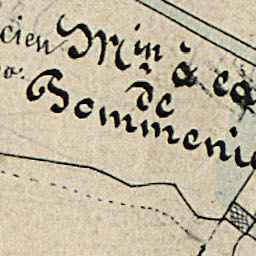 cien Min à ea
de
Bommenie